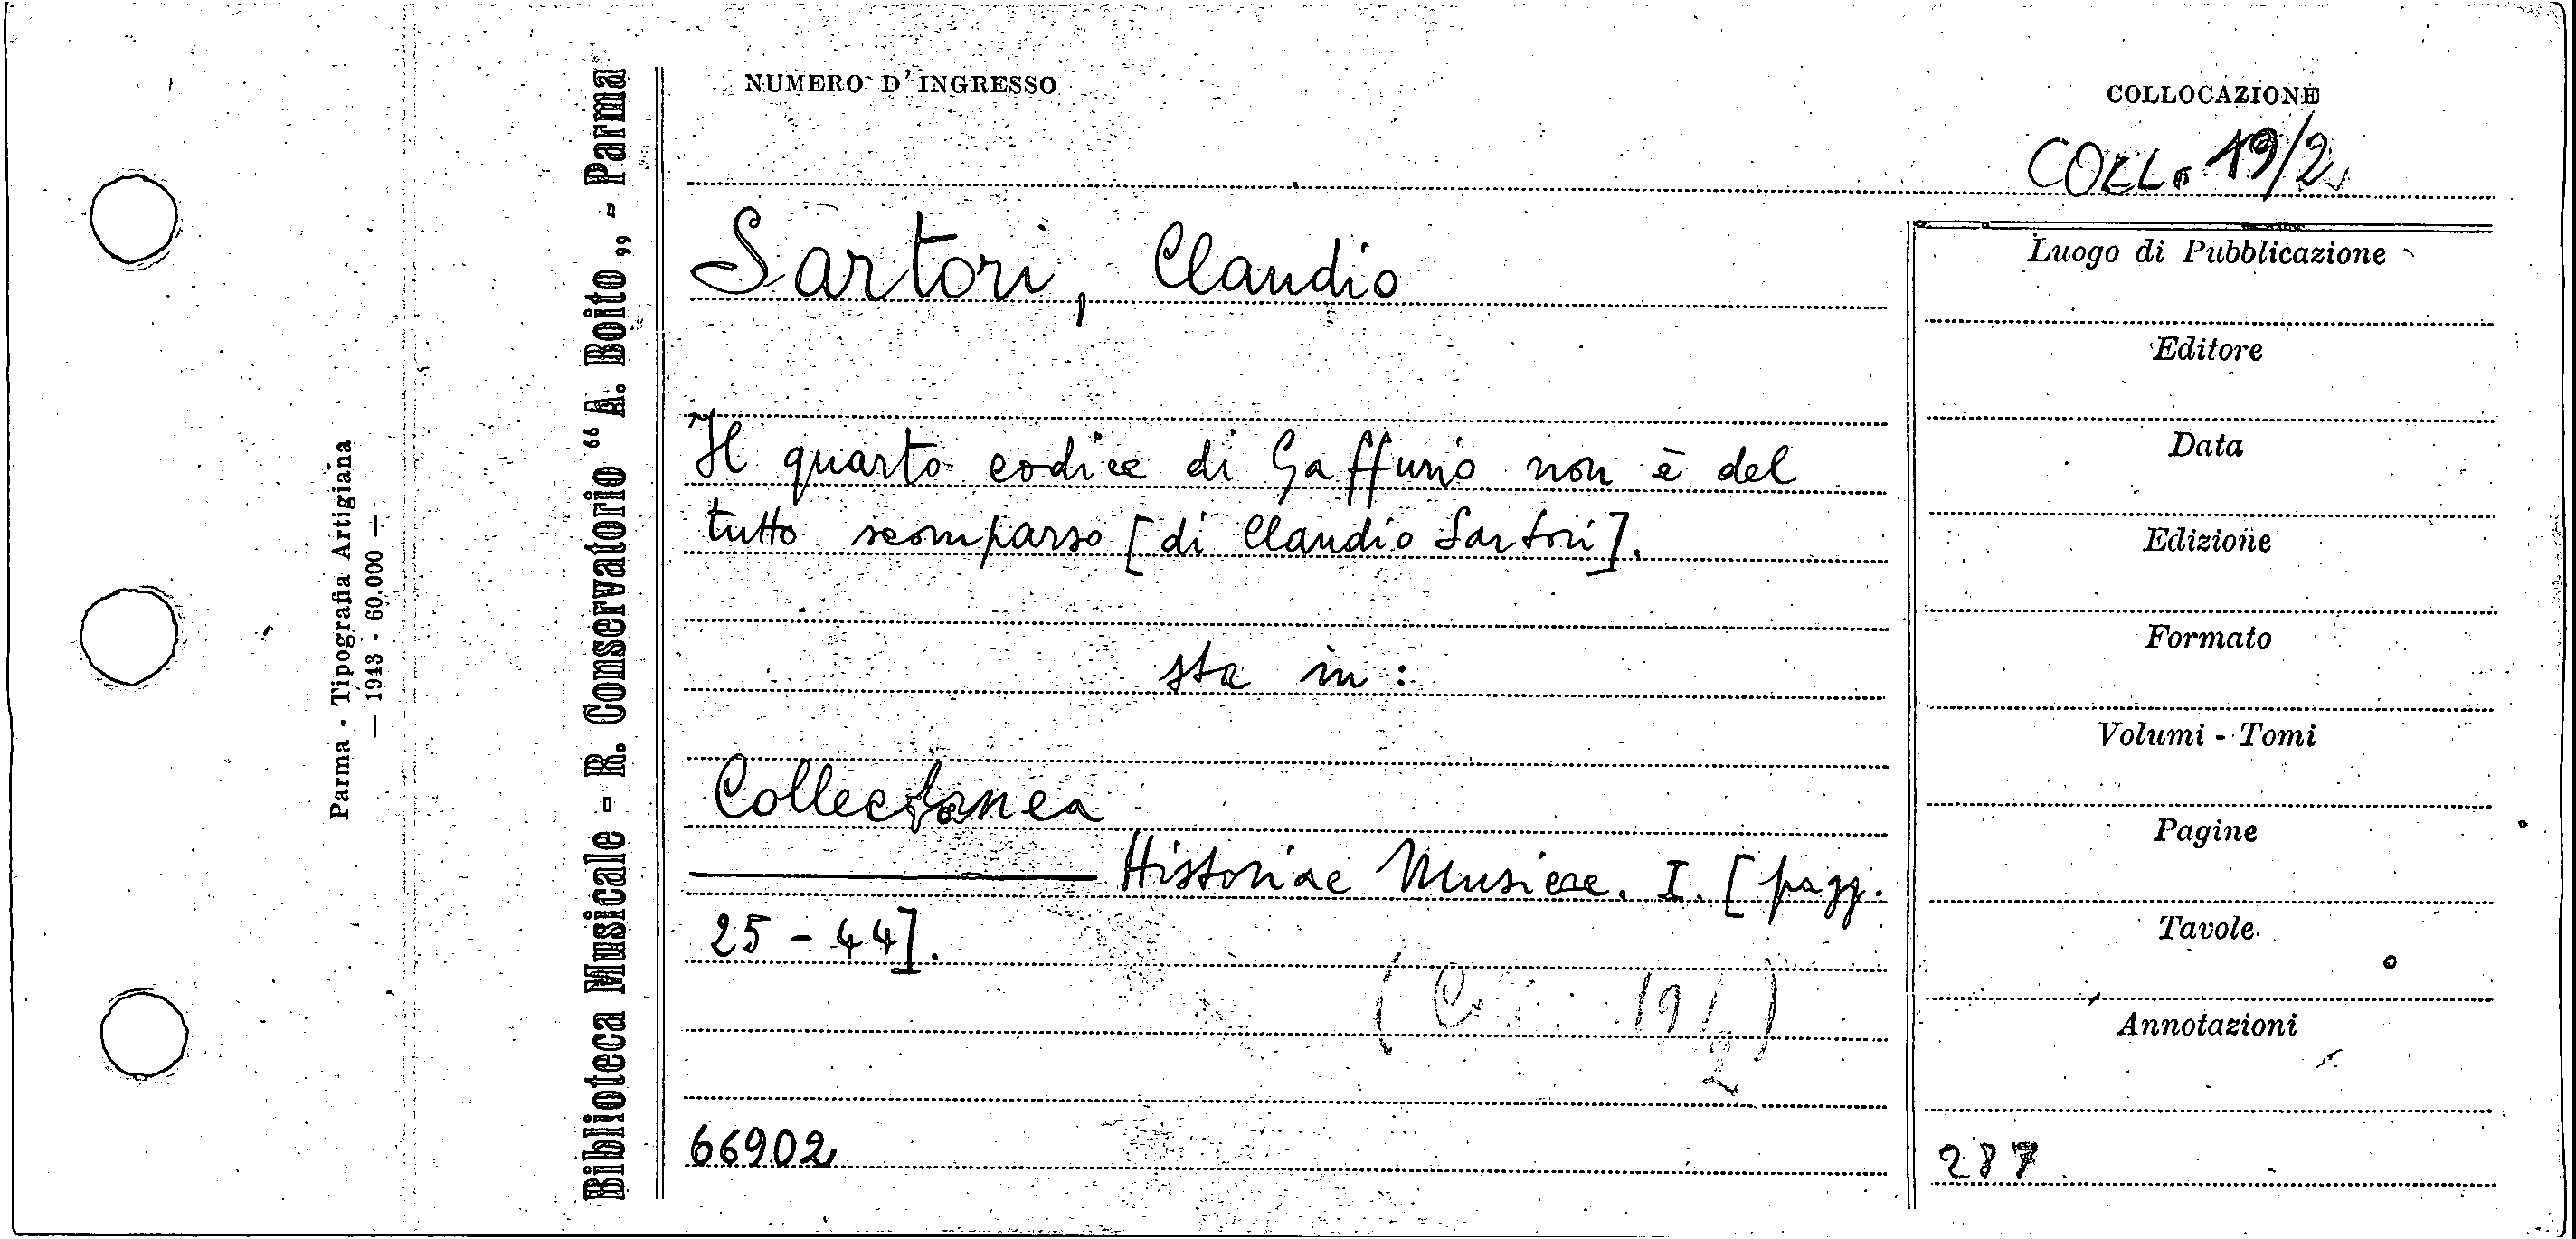 Parma - Tipografia Artigiana
— 1943 - 60.000 —
Biblioteca Musicale - R. Conservatorio “A. Boito„ - Parma
NUMERO D'INGRESSO
COLLOCAZIONE
COLL. 19/2
Sartori, Claudio
Il quarto codice di Gaffurio non è del
tutto scomparso [di Claudio Sartori].
sta in :
Collectanea
Historiae Musicae. I. [pagg.
25 - 44].
19/2)
66902
Luogo di Pubblicazione
Editore
Data
Edizione
Formato
Volumi - Tomi
Pagine
Tavole
Annotazioni
287